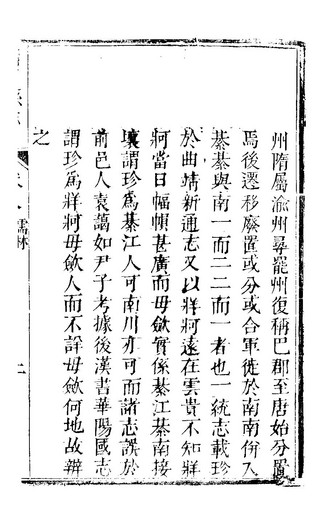 州隋屬渝州尋罷州復稱巴郡至唐始分置
焉後遷移廢置或分或合軍徙於南南併入
綦綦與南一而二二而一者也一統志載珍
於曲靖新通志又以牂牁遠在雲貴不知牂
牁當日幅幀甚廣而毋斂實係綦江綦南接
壤謂珍爲綦江人可南川亦可而諸志誤於
前邑人袁蔼如尹子考據後漢書華陽國志
謂珍爲牂牁毋斂人而不詳毋斂何地故辨
之
儒林
二